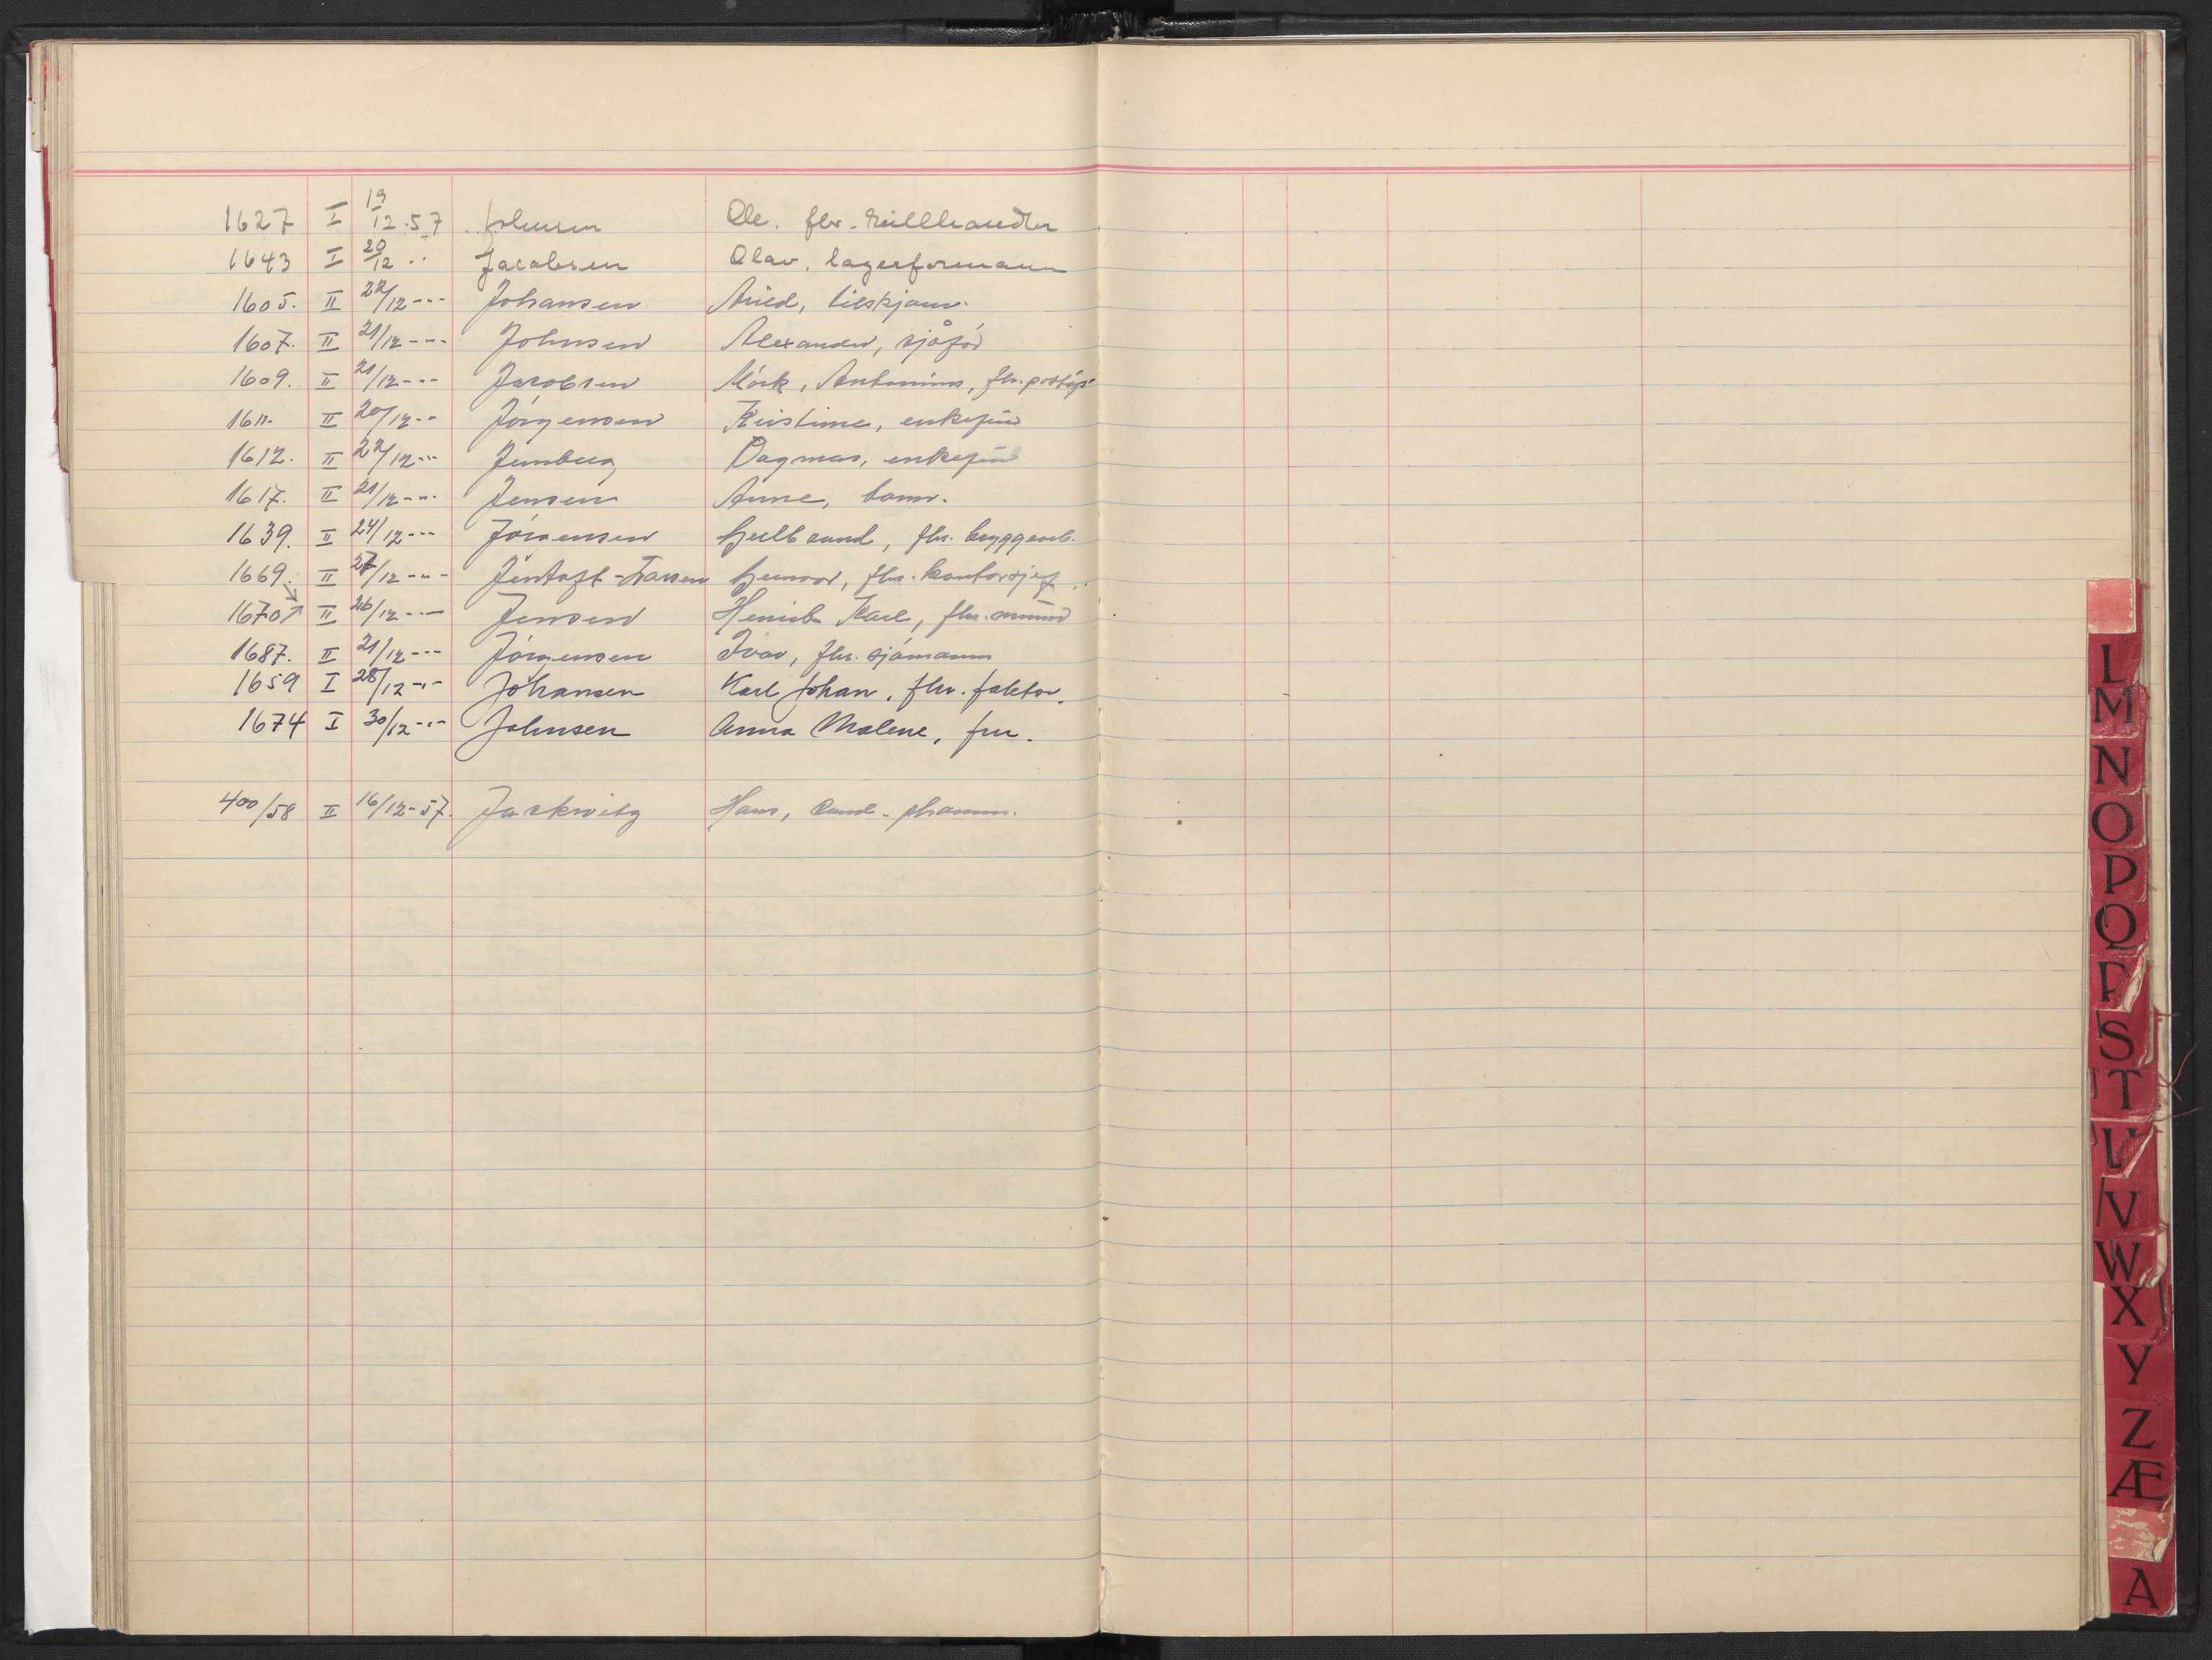 1627 I 19/12.57 Johnsen Ole, fhv.
1643 I 20/12 -"- Jacobsen Olav, lagerformann
1605. II 22/12 -"- Johansen tilskjærer
1607. II 21/12 -"- Johnsen Alexander, sjåfør
1609. II 21/12 -"- Jacobsen Mörk, Antonius, fhv.
1611. II 20/12 -"- Jörgensen Kristine, enkefru
1612. II 22/12 -"- Jernberg Dagmar, enkefru
1617. II 21/12 -"- Jensen Anne, barn.
1639. II 24/12 -"- Jörgensen fhv. bryggearb.
1669. II 27/12 -"- Jentoft-Larsen Gunvor, fhv. kontorsjef
1670 II 26/12 -"- Jensen Henrik Karl, fhv.
1687. II 21/12 -"- Jörgensen Ivar, fhv. sjömann
1659 I 28/12 -"- Johansen Karl Johan, fhv. faktor.
1674 I 30/12 -"- Johnsen Anna Malene, fru.
400/58 II 16/12-57. Jackwitz Hans, cand. pharm.
L
M
N
O
P
Q
R
S
T
U
V
W
X
Y
Z
Æ
A